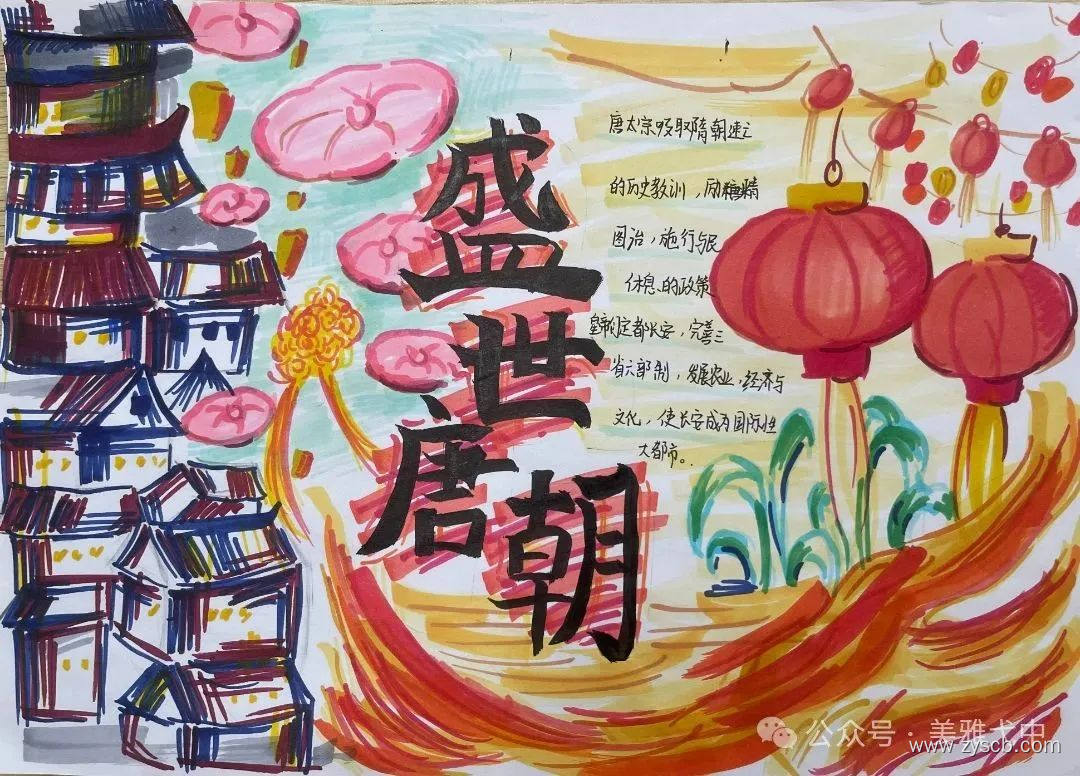 盛世唐朝
唐太宗吸取隋朝速亡
的历史教训，励精
图治，施行与民
休息的政策
皇帝定都长安，完善三
省六部制，发展农业，经济与
文化，使长安成为国际性
大都市。
公众号·美雅弋中
www.zyscb.com